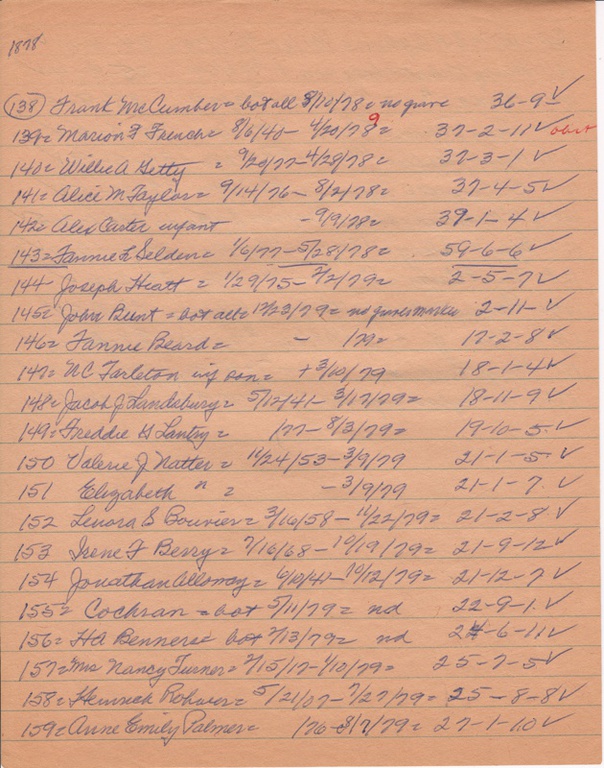 1878
138 Frank McCumber = bot all 8/10/78 = no grave 36-9-✓
139= Marion F French = 8/6/40 - 4/20/78 9 = 37-2-11✓
140= Willie A Getty = 9/20/77-4/29/78 = 37-3-1✓
141= Alice M Taylor = 9/14/76 - 8/2/78 = 37-4-5✓
142= Alex Carter infant - 9/9/78 = 39-1-4✓
143= Fannie L Selden = 1/6/77-5/28/78 = 59-6-6✓
144- Joseph Heatt = 1/29/75-7/2/79= 2-5-7✓
145= John Bunt = bot all= 12/23/79= no graves 2-11-✓
146= Fannie Beard= - 179= 17-2-8✓
147= WC Tarleton inf son= +3/10/79 18-1-4✓
148= Jacob J Landsburg= 5/12/41-3/17/79= 18-11-9✓
149= Freddie G Lantry= 177-8/3/79= 19-10-5-✓
150 Valerie J Natter= 11/24/53-3/9/79 21-1-5-✓
151 Elizabeth " = -3/9/79 21-1-7.✓
152 Lenora S Bouvier= 3/16/58-11/22/79= 21-2-8✓
153 Irene F Berry= 7/16/68-10/19/79= 21-9-12✓
154 Jonathan Alloway= 6/10/41-10/12/79= 21-12-7✓
155= Cochran = bot 5/11/79= nd 22-9-1.✓
156= HA Benners= bot 7/13/79= nd 24-6-11✓
157= Mrs Nancy Turner= 2/15/17-1/10/79= 25-7-5✓
158= Heinrich Rohver= 5/21/07-7/27/79= 25-8-8✓
159= Anne Emily Palmer= 176-8/7/79= 27-1-10✓